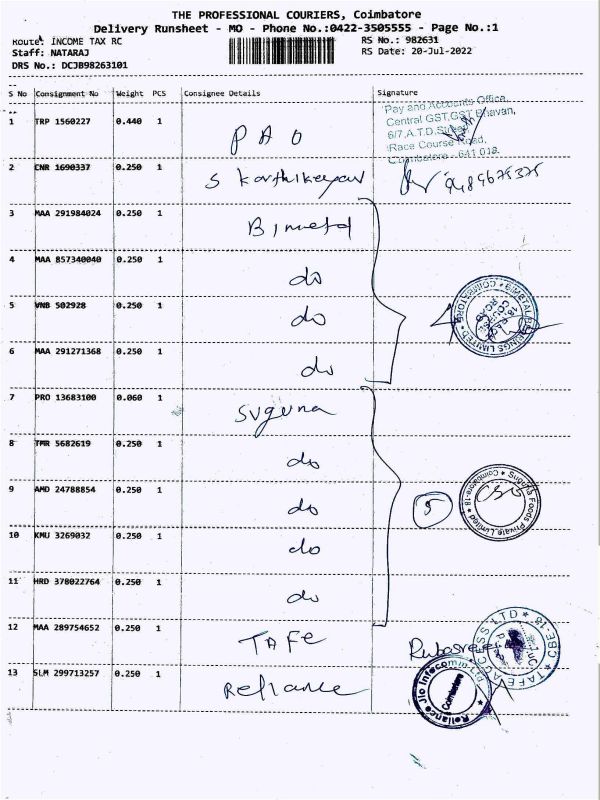 THE PROFESSIONAL COURIERS, Coimbatore
Delivery Runsheet - MO - Phone No.:0422-3505555 - Page No.:1
Route: INCOME TAX RC
RS No.: 982631
Staff: NATARAJ
RS Date: 20-Jul-2022
DRS No.: DCJB98263101
S No Consignment No Weight PCS Consignee Details Signature
1 TRP 1560227 0.440 1 PAO
Pay and Accounts Office,
Central GST, GST Bhavan,
6/7,A.T.D.Street,
Race Course Road,
Coimbatore - 641 018.
2 CNR 1690337 0.250 1 S Karthikeyan
3 MAA 291984024 0.250 1 Bimetal
4 MAA 857340040 0.250 1 do
5 VNB 502928 0.250 1 do
BIMETAL BEARINGS LIMITED * COIMBATORE *
6 MAA 291271368 0.250 1 do
7 PRO 13683100 0.060 1 suguna
8 TMR 5682619 0.250 1 do
9 AMD 24788854 0.250 1 do
5
Suguna Foods Private Limited * Coimbatore-18 *
10 KMU 3269032 0.250 1 do
11 HRD 378022764 0.250 1 do
12 MAA 289754652 0.250 1 TAFE
TAFE ACCESS LTD * CBE-18 *
13 SLM 299713257 0.250 1 Reliance
Reliance Jio Infocomm
Coimbatore